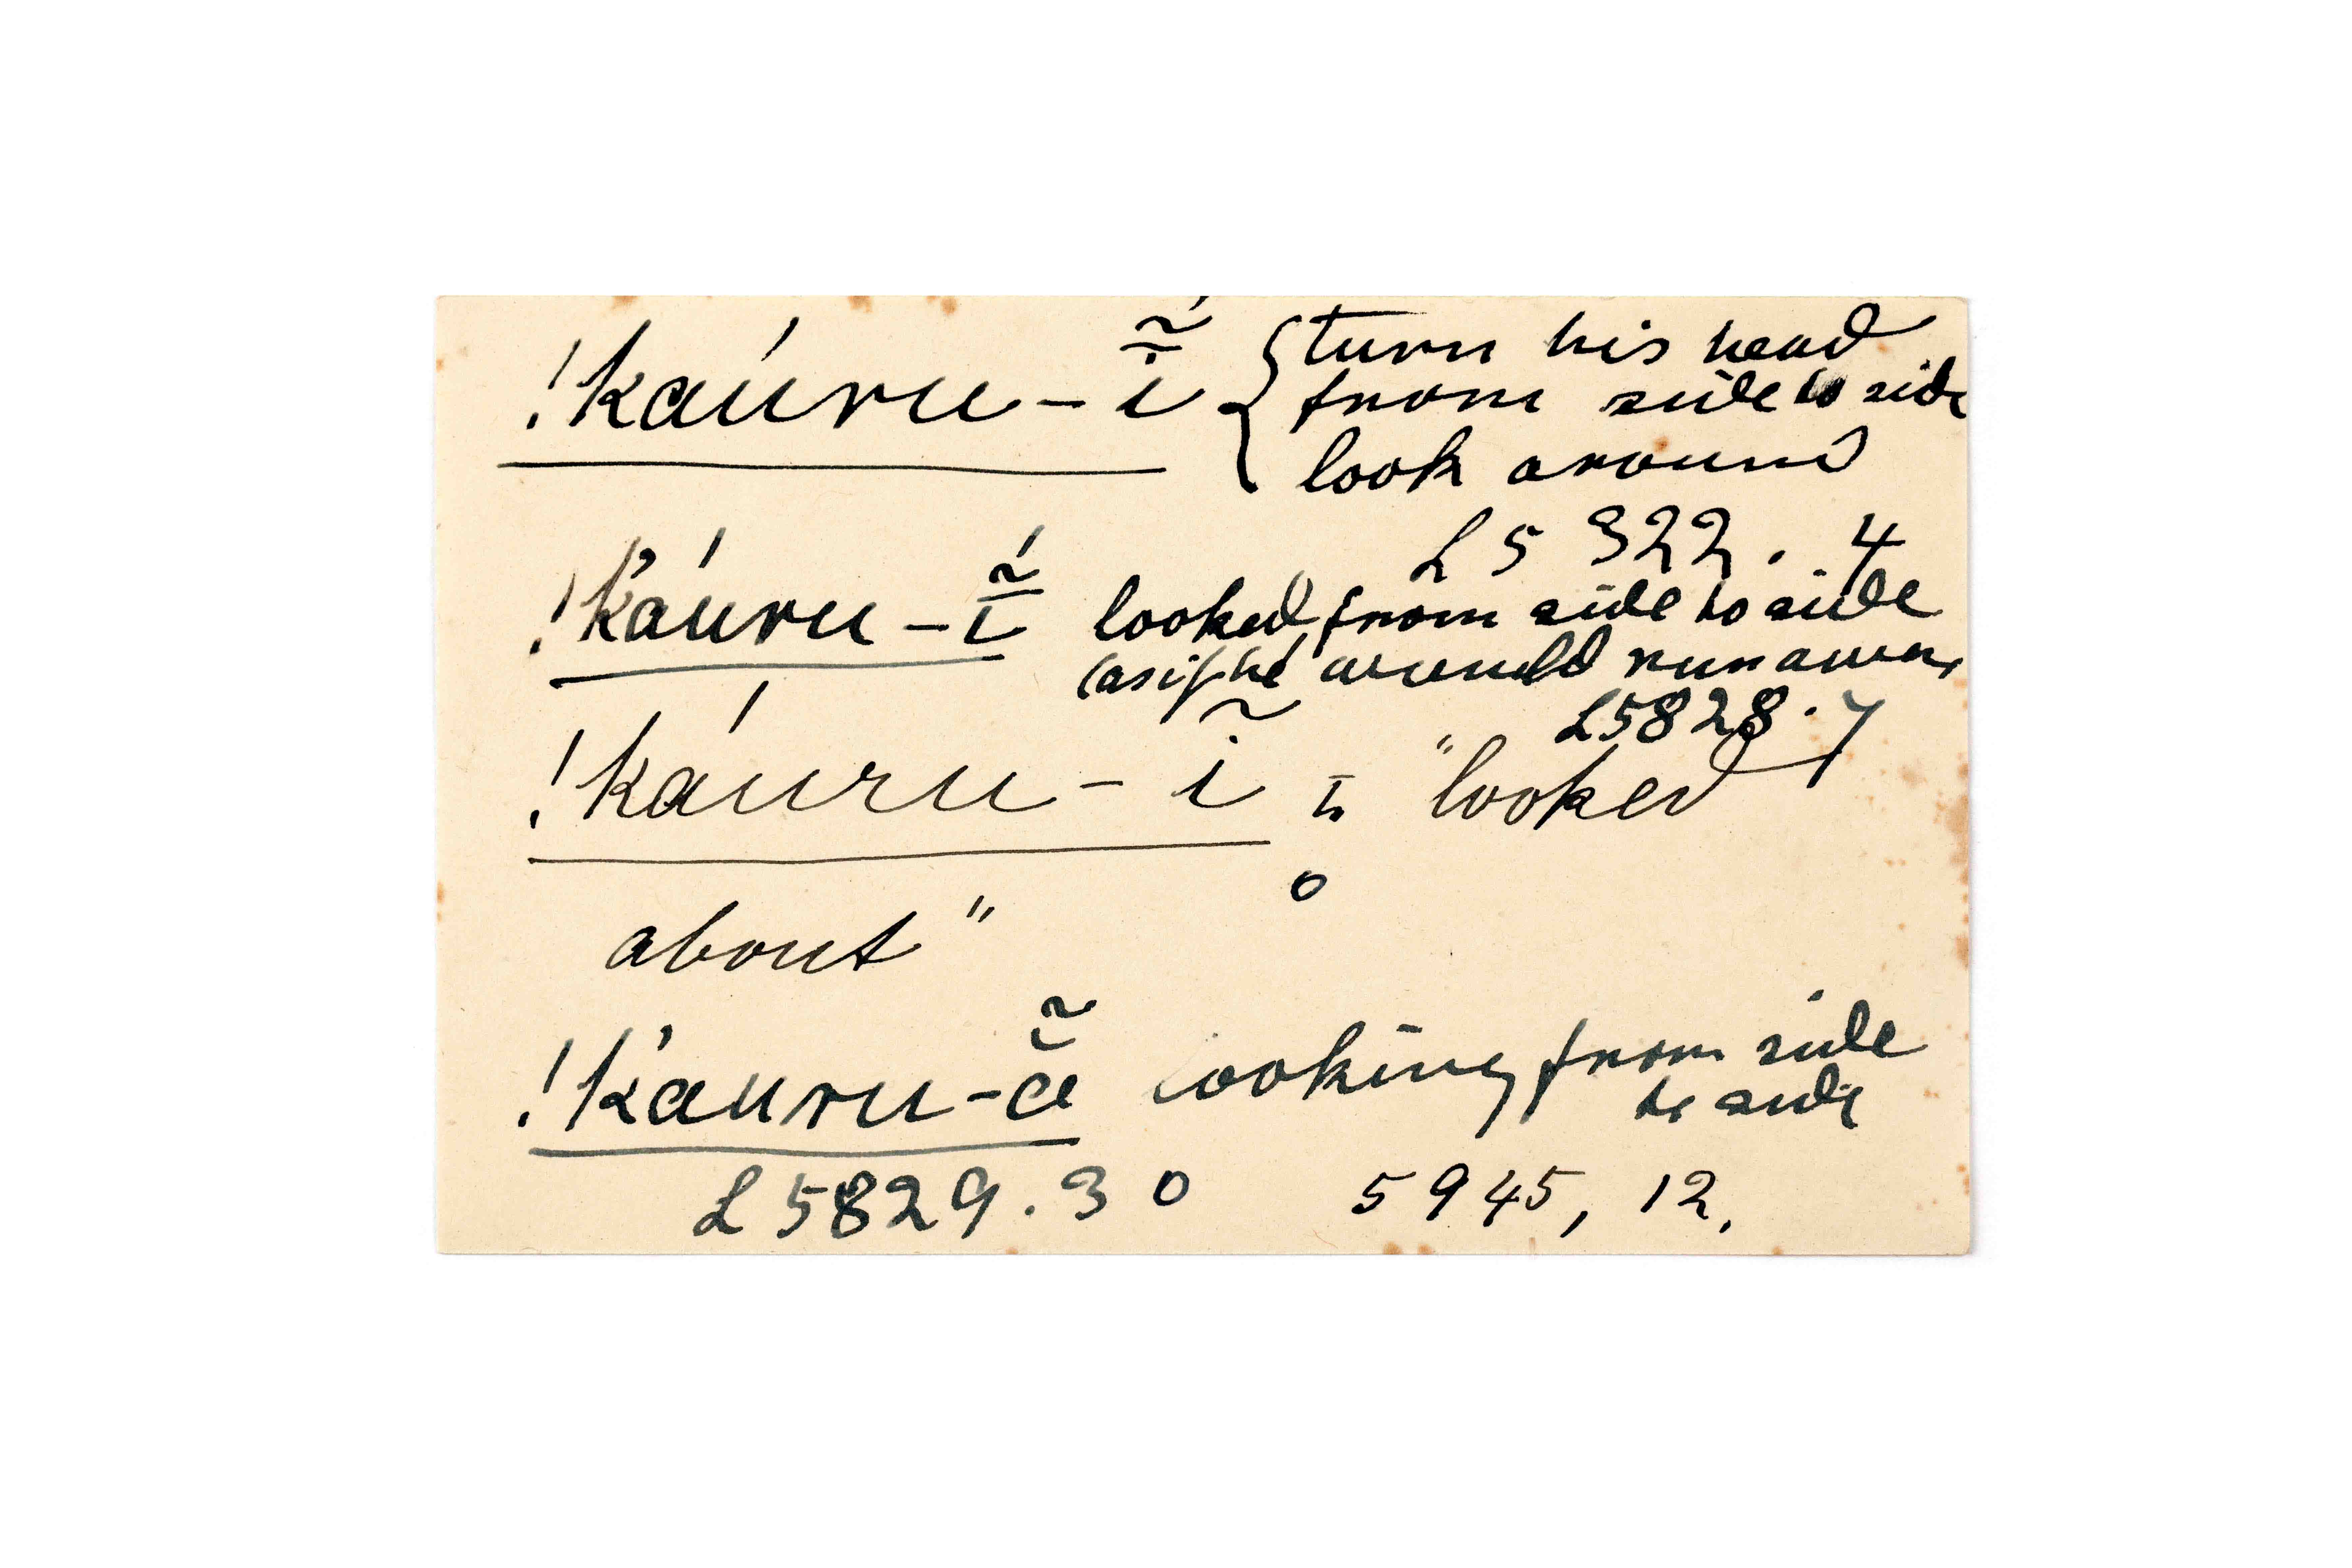 !kaúru-ī̃́ { turn his head
from side to side
look around
L5 322. 4
!k̓aúru-ī̃́ looked from side to side
(as if he would run away
L5828.7
!kaúru-ĩ "looked
about"
!k̓auru-ẵ looking from side
to side
L5829.30 5945, 12.